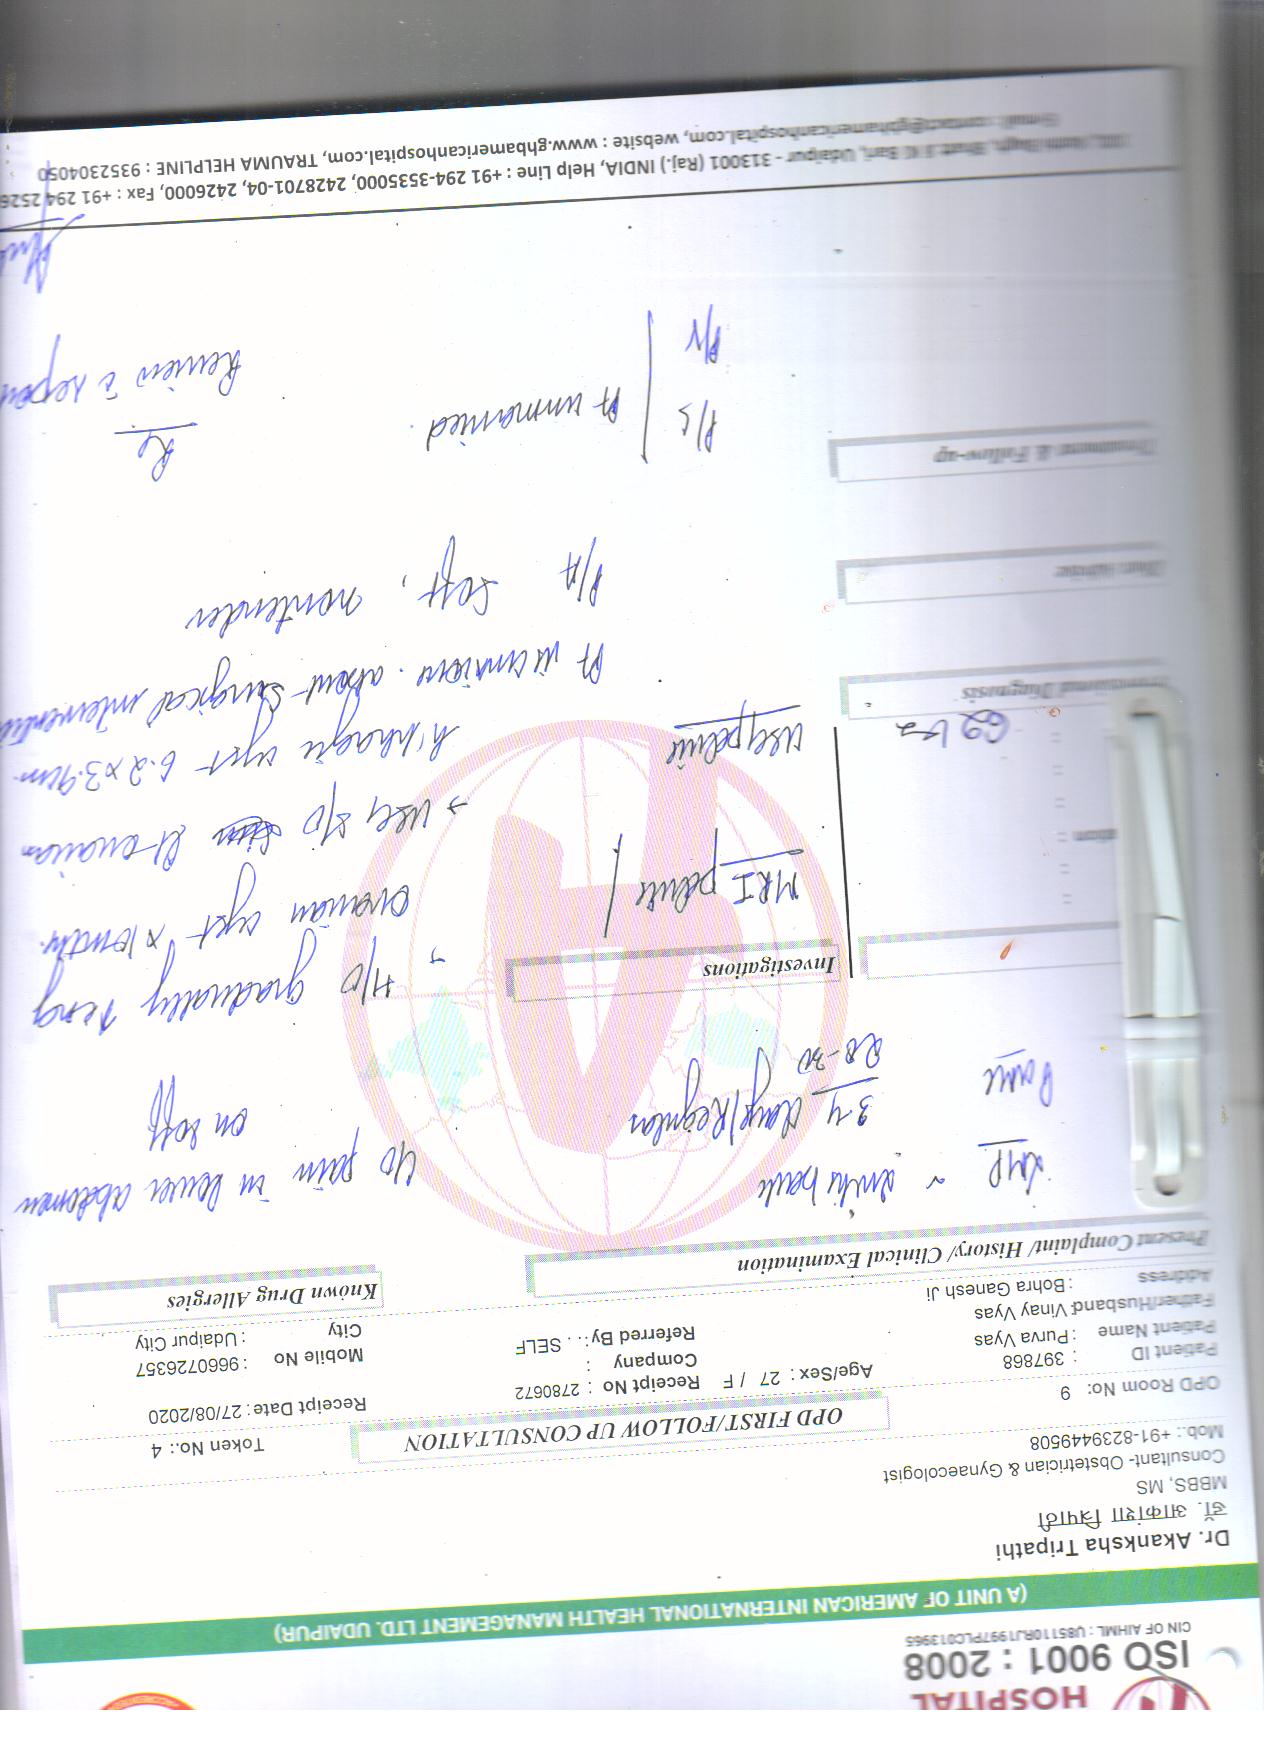 HOSPITAL
ISO 9001 : 2008
CIN OF AIHML : U85110RJ1997PLC013965
(A UNIT OF AMERICAN INTERNATIONAL HEALTH MANAGEMENT LTD. UDAIPUR)
Dr. Akanksha Tripathi
डॉ. आकांक्षा त्रिपाठी
MBBS, MS
Consultant- Obstetrician & Gynaecologist
Mob.: +91-8239449508
OPD FIRST/FOLLOW UP CONSULTATION
Token No.: 4
OPD Room No: 9
Receipt Date : 27/08/2020
Patient ID : 397868
Age/Sex : 27 / F
Receipt No : 2780672
Mobile No : 9660726357
Patient Name : Purva Vyas
Company :
Father/Husband: Vinay Vyas
Referred By: . . SELF
City : Udaipur City
Address : Bohra Ganesh Ji
Present Complaint/ History/ Clinical Examination
Known Drug Allergies
LMP ~
C/O pain in lower abdomen
on & off
3-4 days/Regular
28-30
H/O gradually ↑ing
ovarian cyst x 10 mths.
Investigations
MRI pelvis
→ USG S/O Lt ovarian
h'rhagic cyst 6.2 x 3.9cm.
USG pelvis
Pt is anxious about surgical
P/A soft, nontender
Provisional Diagnosis
Diet Advise
Treatment & Follow-up
P/S
P/V
Pt unmarried.
Rx
Review c̄
Bhatt Ji Ki Bari, Udaipur - 313001 (Raj.) INDIA, Help Line : +91 294-3535000, 2428701-04, 2426000, Fax : +91 294 2526
E-mail : contact@gbhamericanhospital.com, website : www.gbhamericanhospital.com, TRAUMA HELPLINE : 9352304050